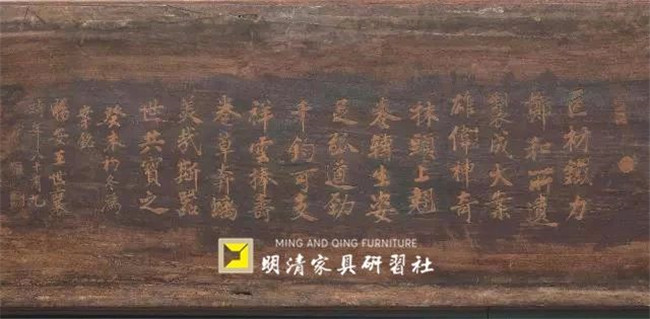 巨材鐵力
鄭和所遺
製成大案
雄偉神奇
抹頭上翹
卷轉生姿
足弧遒勁
千鈞可支
祥雲捧壽
卷草奔螭
美哉斯器
世共寶之
癸未初冬為
案銘
暢安王世襄
時年八十有九
刻
MING AND QING FURNITURE
明清家具研習社